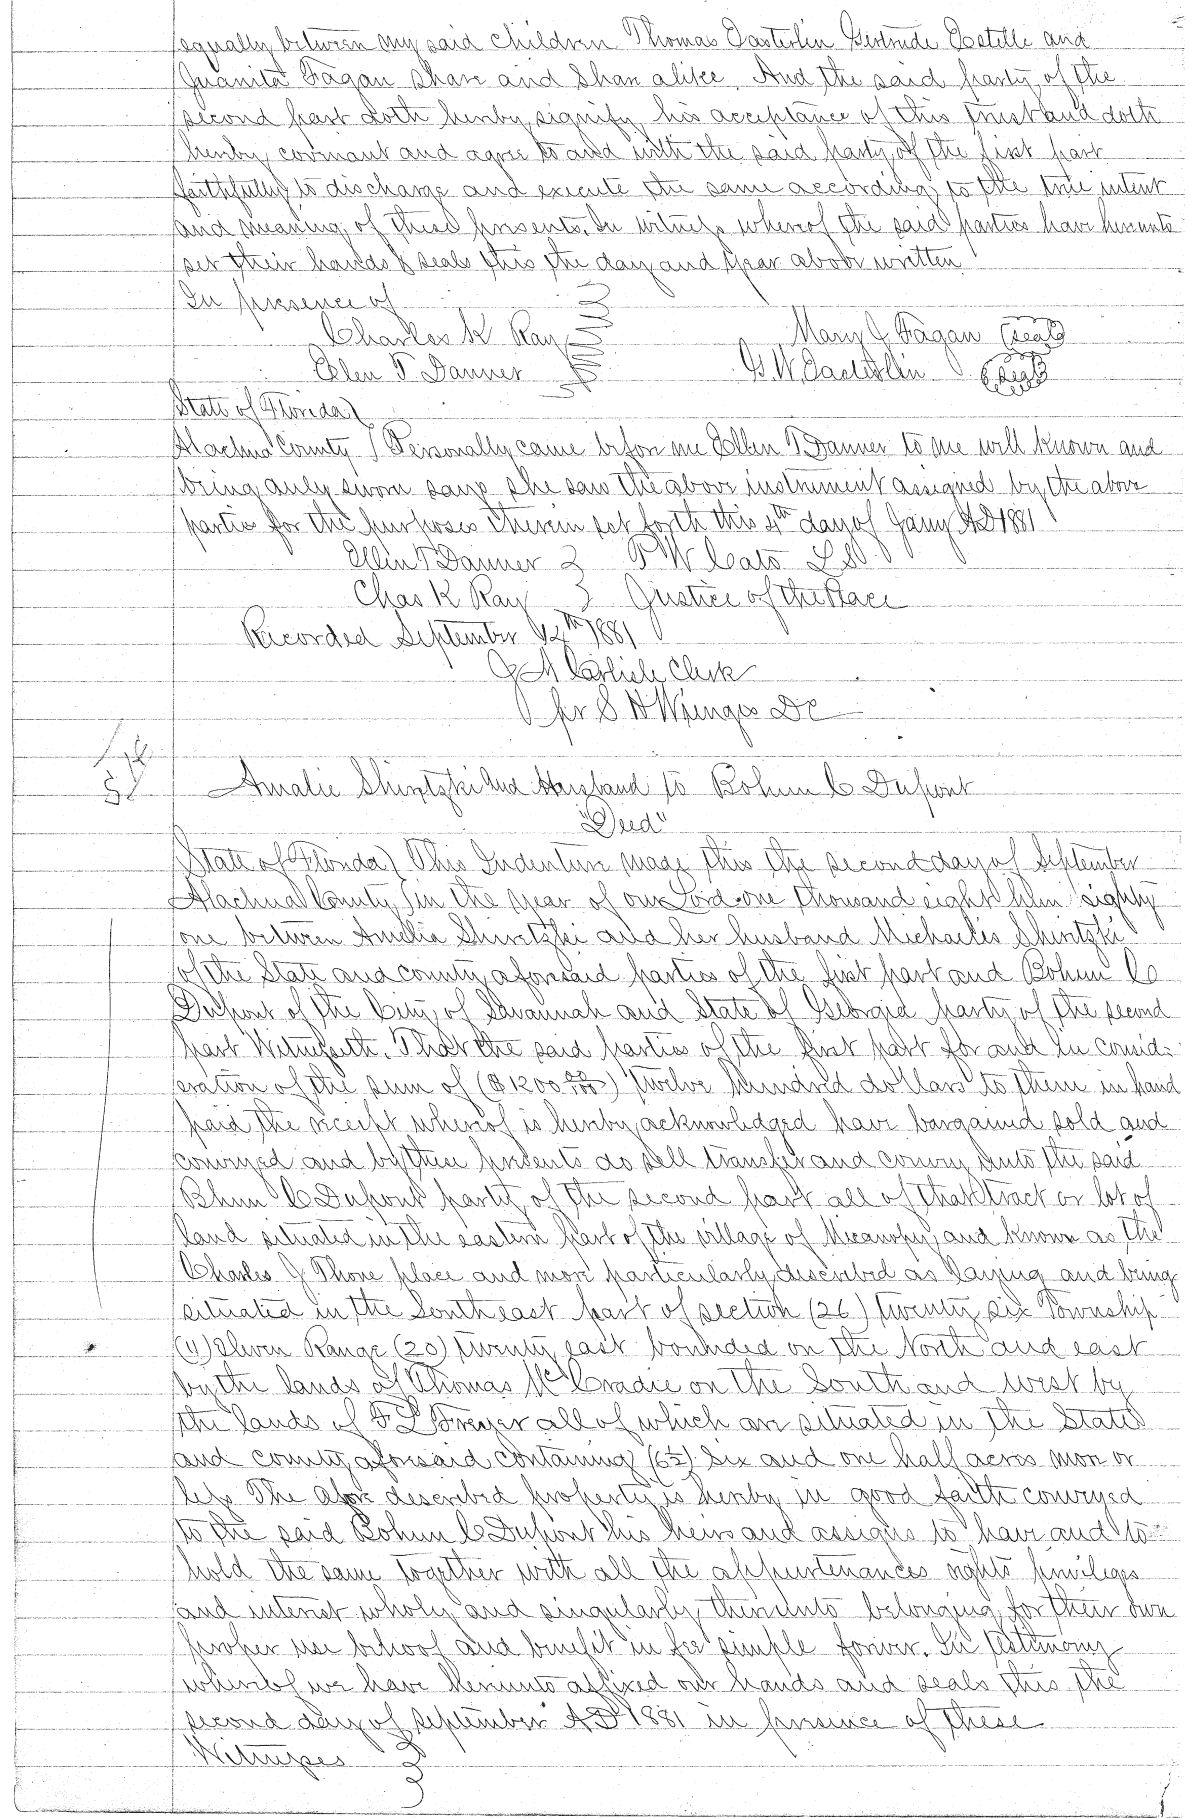 equally between my said children Thomas Easterlin Gertrude Estelle and
Juanita Fagan share and share alike. And the said party of the
second part doth hereby signify his acceptance of this trust and doth
hereby covenant and agree to and with the said party of the first part
faithfully to discharge and execute the same according to the true intent
and meaning of these presents. In witness whereof the said parties have hereunto
set their hands & seals this the day and year above written
In presence of
Charles K Ray Mary J Fagan (seal)
Ellen T Danner G. W. Easterlin (seal)
State of Florida
Alachua County Personally came before me Ellen T Danner to me well known and
being duly sworn says she saw the above instrument assigned by the above
parties for the purposes therein set forth this 4th day of Jany AD 1881
Ellen T Danner P W Cato L S.
Chas K Ray Justice of the Peace
Recorded September 12th 1881
J A Carlisle Clerk
pr S H Wienges DC
Amalie Shiretzki and Husband to Bohun C Dupont
"Deed"
State of Florida This Indenture made this the second day of September
Alachua County in the year of our Lord one thousand eight hun eighty
one between Amelia Shiretzki and her husband Michaelis Shiretzki
of the State and county aforesaid parties of the first part and Bohun C
Dupont of the City of Savannah and State of Georgia party of the second
part Witnesseth. That the said parties of the first part for and in consid-
eration of the sum of ($1200 00/100) twelve hundred dollars to them in hand
paid the receipt whereof is hereby acknowledged have bargained sold and
conveyed and by these presents do sell transfer and convey unto the said
Bhun C Dupont party of the second part all of that tract or lot of
land situated in the eastern part of the village of Micanopy and known as the
Charles J Thone place and more particularly described as laying and being
situated in the South east part of section (26) twenty six Township
(11) Eleven Range (20) twenty east bounded on the North and east
by the lands of Thomas McCradie on the South and west by
the lands of F L Freyer all of which are situated in the State
and county aforesaid containing (6½) Six and one half acres more or
less The afore described property is hereby in good faith conveyed
to the said Bohun C Dupont his heirs and assigns to have and to
hold the same together with all the appurtenances rights privileges
and interest wholy and singularly thereunto belonging for their own
proper use behoof and benefit in fee simple forever. In testimony
whereof we have hereunto affixed our hands and seals this the
second day of september AD 1881 in presence of these
Witnesses